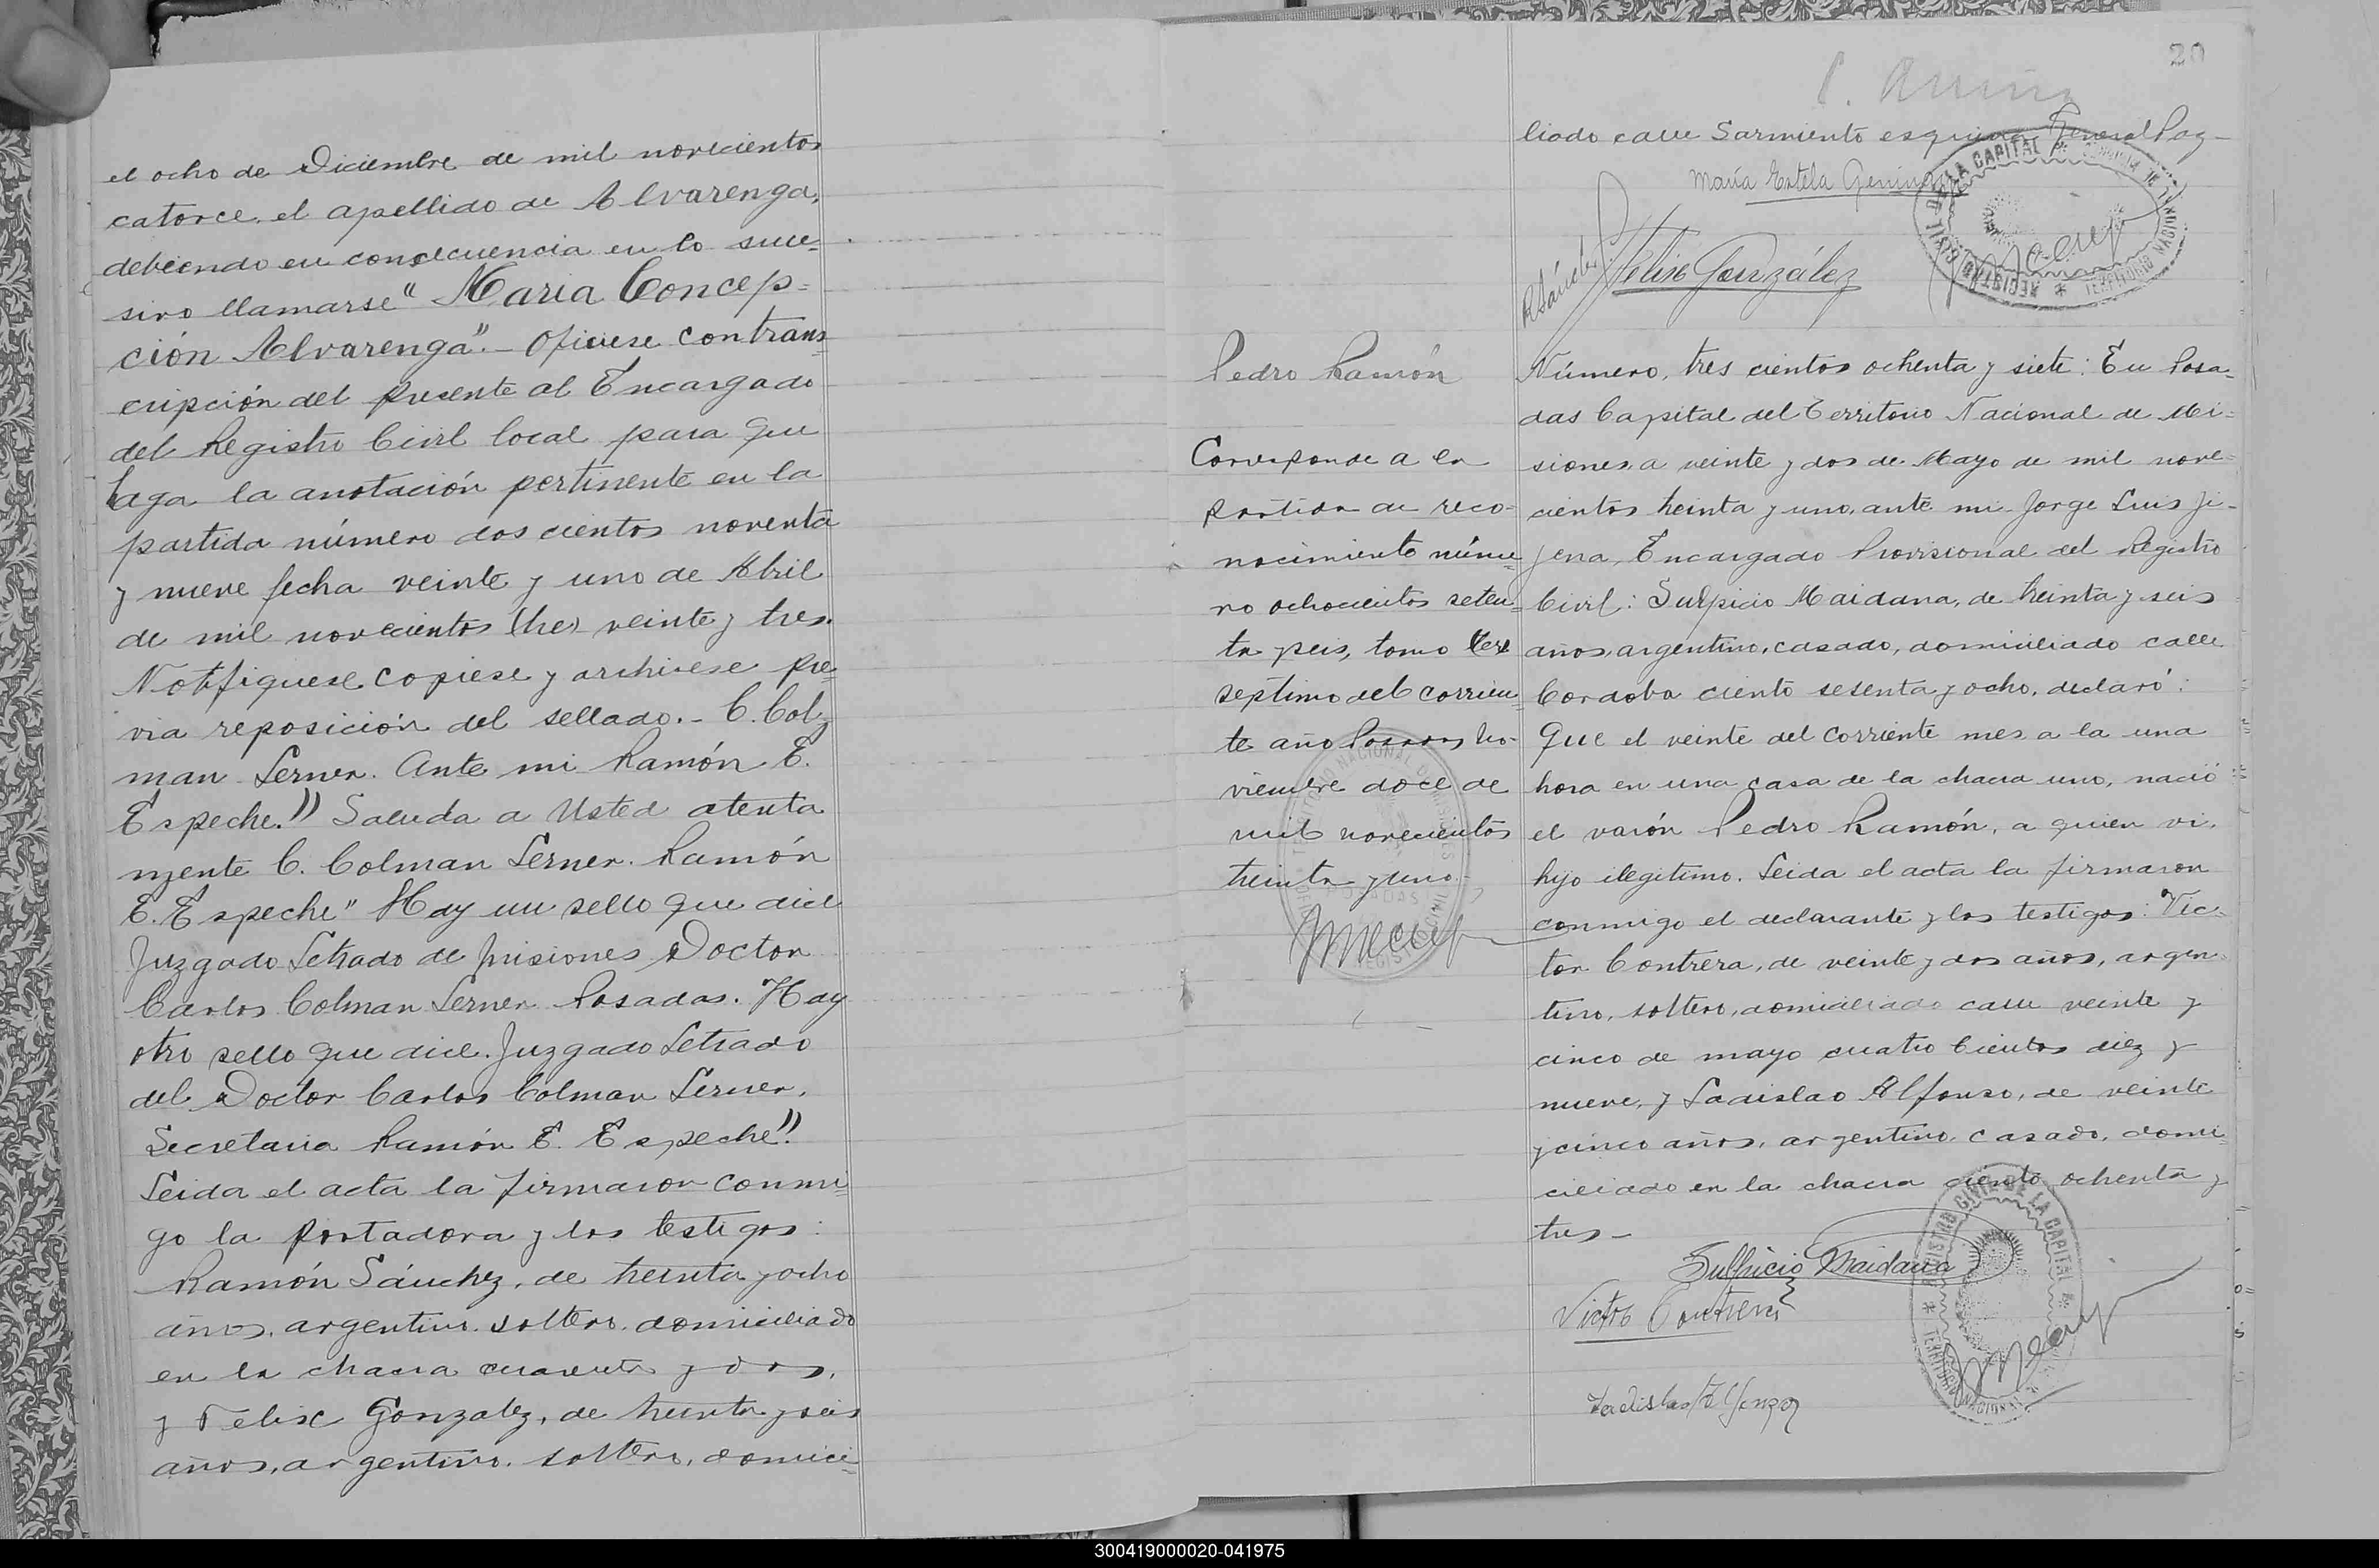 el ocho de Diciembre de mil novecientos
catorce, el apellido de Alvarenga,
debiendo en consecuencia en lo suce=
sivo llamarse "Maria Concep=
ción Alvarenga".- Oficiese con trans=
cripción del presente al Encargado
del Registro Civil local para que
haga la anotación pertinente en la
partida número dos cientos noventa
y nueve fecha veinte y uno de Abril
de mil novecientos (tre) veinte y tres.
Notifiquese copiese y archivese pre=
via reposición del sellado.- C. Col=
man Lerner. Ante mi Ramón E.
Espeche." Saluda a Usted atenta
mente C. Colman Lerner. Ramón
E. Espeche" Hay un sello que dice
Juzgado Letrado de Misiones Doctor
Carlos Colman Lerner Posadas. Hay
otro sello que dice. Juzgado Letrado
del Doctor Carlos Colman Lerner.
Secretaria Ramón E. Espeche".
Leida el acta la firmaron conmi=
go la portadora y los testigos:
Ramón Sánchez, de treinta y ocho
años, argentino, soltero, domiciliado
en la chacra cuarenta y dos,
y Felix Gonzalez, de treinta y seis
años, argentino, soltero, domici=
20
liado calle Sarmiento esquina General Paz-
María Estela
RSánchez
Felix González
REGISTRO CIVIL DE LA CAPITAL
TERRITORIO NACIONAL
Pedro Ramón
Corresponde a la
partida de reco=
nocimiento núme=
ro ochocientos seten=
ta y seis, tomo
septimo del corrien=
te año Posadas No-
viembre doce de
mil novecientos
treinta y uno.
Número, tres cientos ochenta y siete: En Posa=
das Capital del Territorio Nacional de Mi=
siones, a veinte y dos de Mayo de mil nove=
cientos treinta y uno, ante mi Jorge Luis Ji-
jena, Encargado Provisional del Registro
Civil: Sulpicio Maidana, de treinta y seis
años, argentino, casado, domiciliado calle
Cordoba ciento sesenta y ocho, declaró:
Que el veinte del corriente mes a la una
hora en una casa de la chacra uno, nació
el varón Pedro Ramón, a quien vi,
hijo ilegitimo. Leida el acta la firmaron
conmigo el declarante y los testigos: Vic=
tor Contrera, de veinte y dos años, argen=
tino, soltero, domiciliado calle veinte y
cinco de mayo cuatro cientos diez y
nueve, y Ladislao Alfonso, de veinte
y cinco años, argentino, casado, domi=
ciliado en la chacra ciento ochenta y
tres-
Sulpicio Maidana
Victor Contrera
Ladislao Alfonzo
REGISTRO CIVIL DE LA CAPITAL
TERRITORIO NACIONAL
300419000020-041975